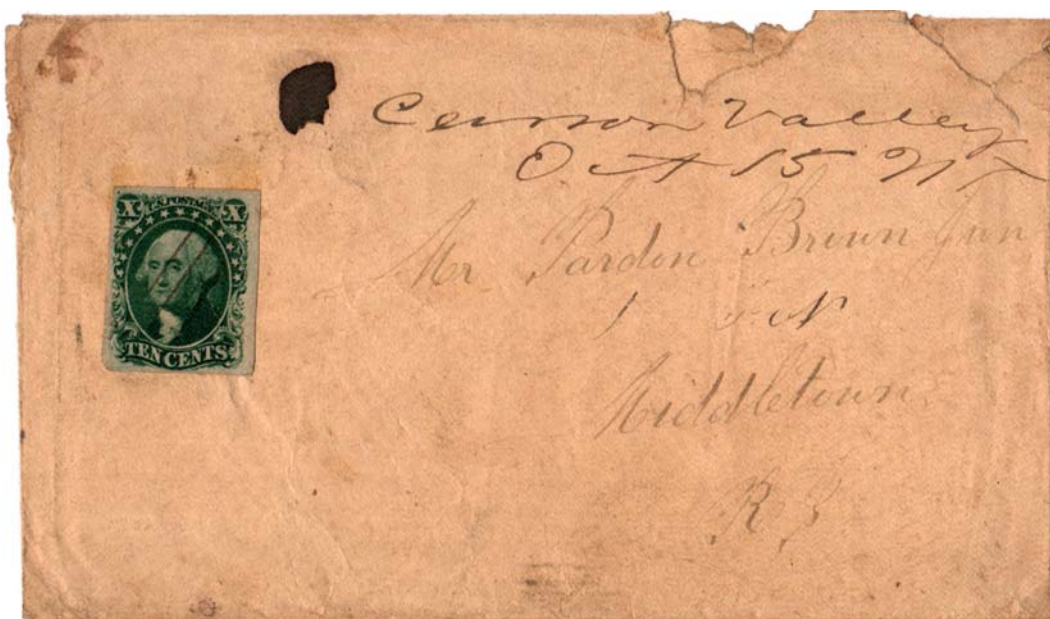 Carson Valley
Oct 15 UT
X U.S. POSTAGE X
TEN CENTS
Mr Pardon Brown Jun
Middletown
R I